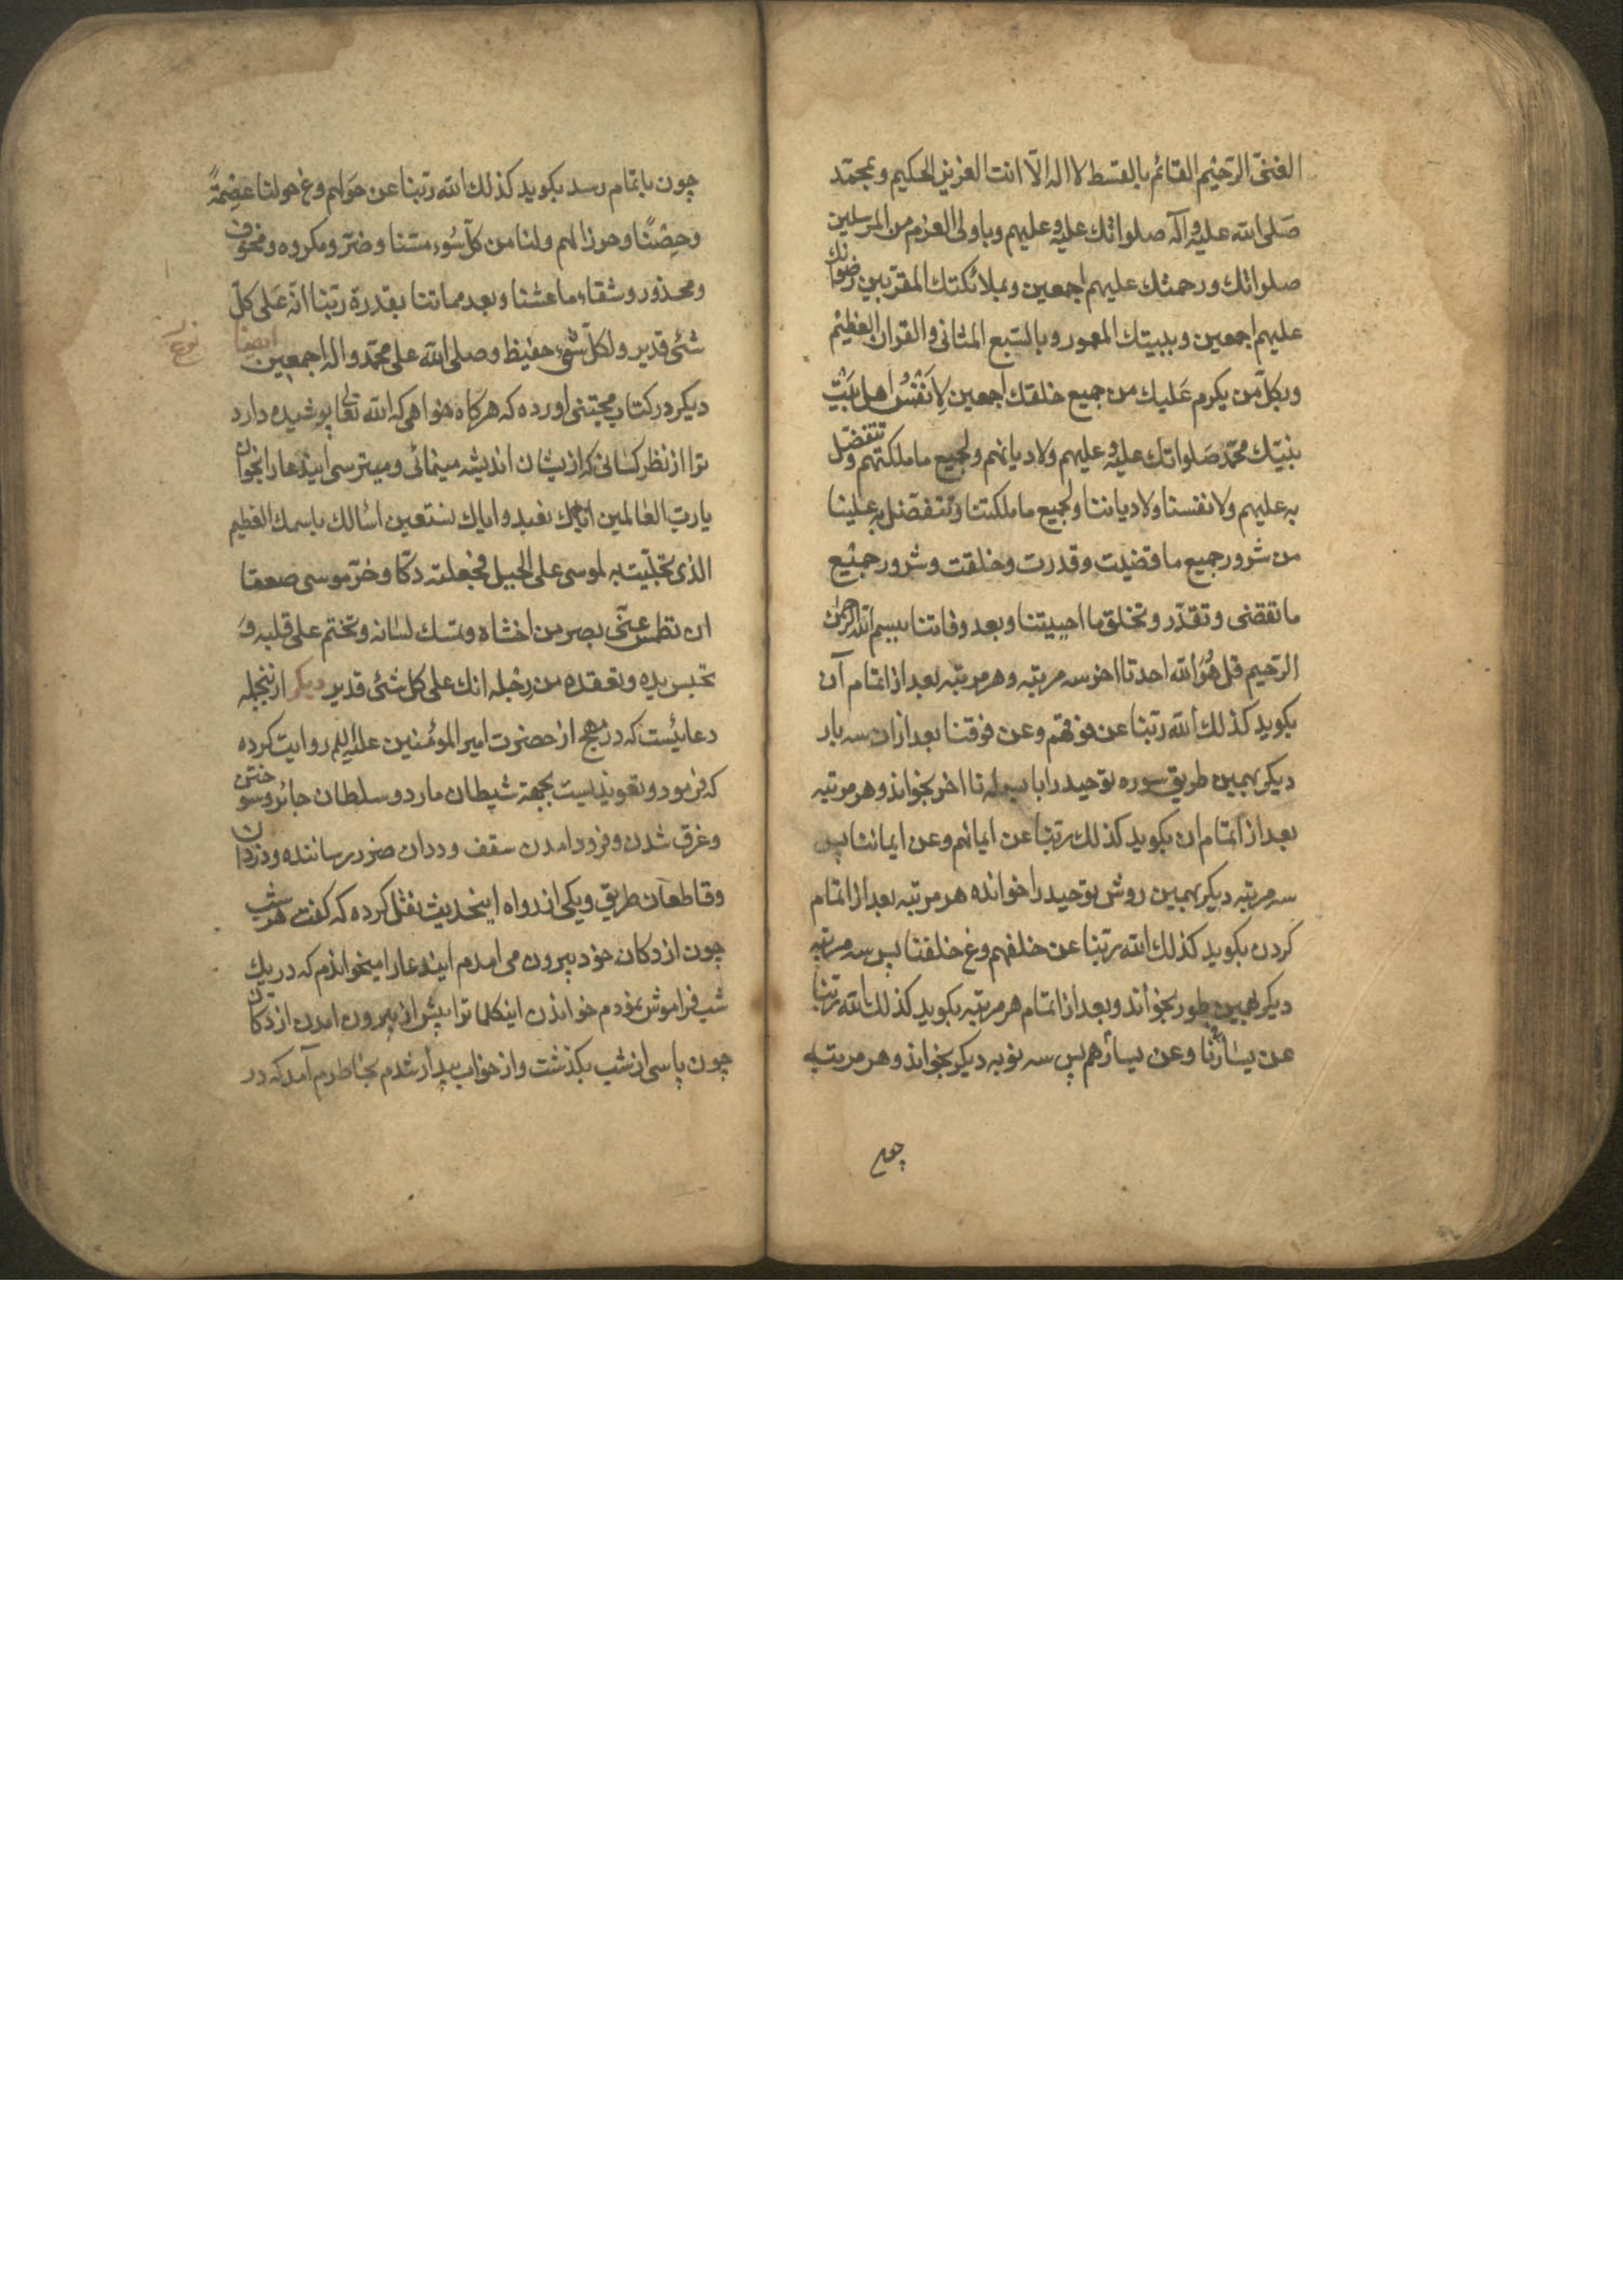 الغنیّ الرّحیم القائم بالقسط لا اله الّا انت العزیز الحکیم و بمحمّد
صَلی الله علیه و آله صلواتك علیه و علیهم و باولی العزم من المرسلین
صلواتك و رحمتك علیهم اجمعین و بملائکتك المقرّبین رضوانك
علیهم اجمعین و ببیتك المعمور و بالسّبع المثانی و القران العظیم
و بکلّ من یکرم عَلیك من جمیع خلقك اجمعین لِاَنْفُسِ اهل بَیْتِ
نبیّك محمّد صَلواتك علیه و علیهم ولادیانهم و لجمیع ما ملکتهم و تتفضّل
به علیهم ولانفسنا ولادیاننا و لجمیع ما ملکتنا و تتفضّل به علینا
من شرور جمیع ما قضیت و قدرت و خلقت و شرور جمیْع
ما تقضی و تقدّر و تخلق ما احییتنا و بعد وفاتنا ببسم الله الرّحمن
الرّحیم قل هُوَ الله احد تا اخر سه مرتبه و هر مرتبه بعد از اتمام آن
بکوید کذلك الله ربّنا عن فوقهم و عن فوقنا بعد از ان سه بار
دیکر بهمین طریق سوره توحید را با بسمله تا اخر بخواند و هر مرتبه
بعد از اتمام ان بکوید کذلك ربّنا عن ایمانهم و عن ایماننا پس
سه مرتبه دیکر بهمین روش توحید را خوانده هر مرتبه بعد از اتمام
کردن بکوید کذلك الله ربّنا عن خلفهم و عن خلفنا پس سه مرتبه
دیکر بهمین طور بخواند و بعد از اتمام هر مرتبه بکوید کذلك الله ربّنا
عن یسارنا و عن یسارهم پس سه نوبه دیکر بخواند و هر مرتبه
چون
چون باتمام رسد بکوید کذلك الله ربّنا عن حَولهم و عن حولنا عِصْمةً
و حِصْنًا و حرزا لهم و لنا من کلّ سُوء مسّنا و ضرّ و مکروه و مخوف
و محذور و شقاء ما عشنا و بعد مماتنا بقدرة ربّنا انّه عَلی کلّ
شئ قدیر و لکلّ شئ حفیظ و صلی الله علی محمّد و اله اجمعین ایضا
نوع
دیکر در کتاب مجتنی اورده که هرکاه خواهی که الله تعا پوشیده دارد
ترا از نظر کسانی که از یشان اندیشه مینمائی و میترسی ایندعا را بخوان
یا ربّ العٰالمین ایّاك نعبد و ایاك نستعین اسٔالك باسمك العظیم
الذی تجلّیت به لموسی علی الجبل فجعلته دکّا و خرّ موسی صعقا
ان تطمس عنّی بصر من اخشاه و تمسك لسٰانه و تختم علی قلبه وَ
تحبس یده و تعقده من رِجْله انك علی کل شئ قدیر دیکر از ینجمله
دعائیست که در نهج از حضرت امیر المؤمنین علیه السلم روایت کرده
که فرمود و تعویذیست بجهة شیطان مارد و سلطان جائر و سوختن
و غرق شدن و فرود امدن سقف و ددان ضرر رساننده و دزدان
و قاطعان طریق و یکی از رواه اینحدیث نقل کرده که کفت هر شب
چون از دکان خود بیرون می امدم ایندعا را میخواندم که در یك
شب فراموش نمودم خواندن اینکلما ترا پیش از بیرون امدن از دکان
چون پاسی از شب بکذشت و از خواب بیدار شدم بخاطرم آمد که در